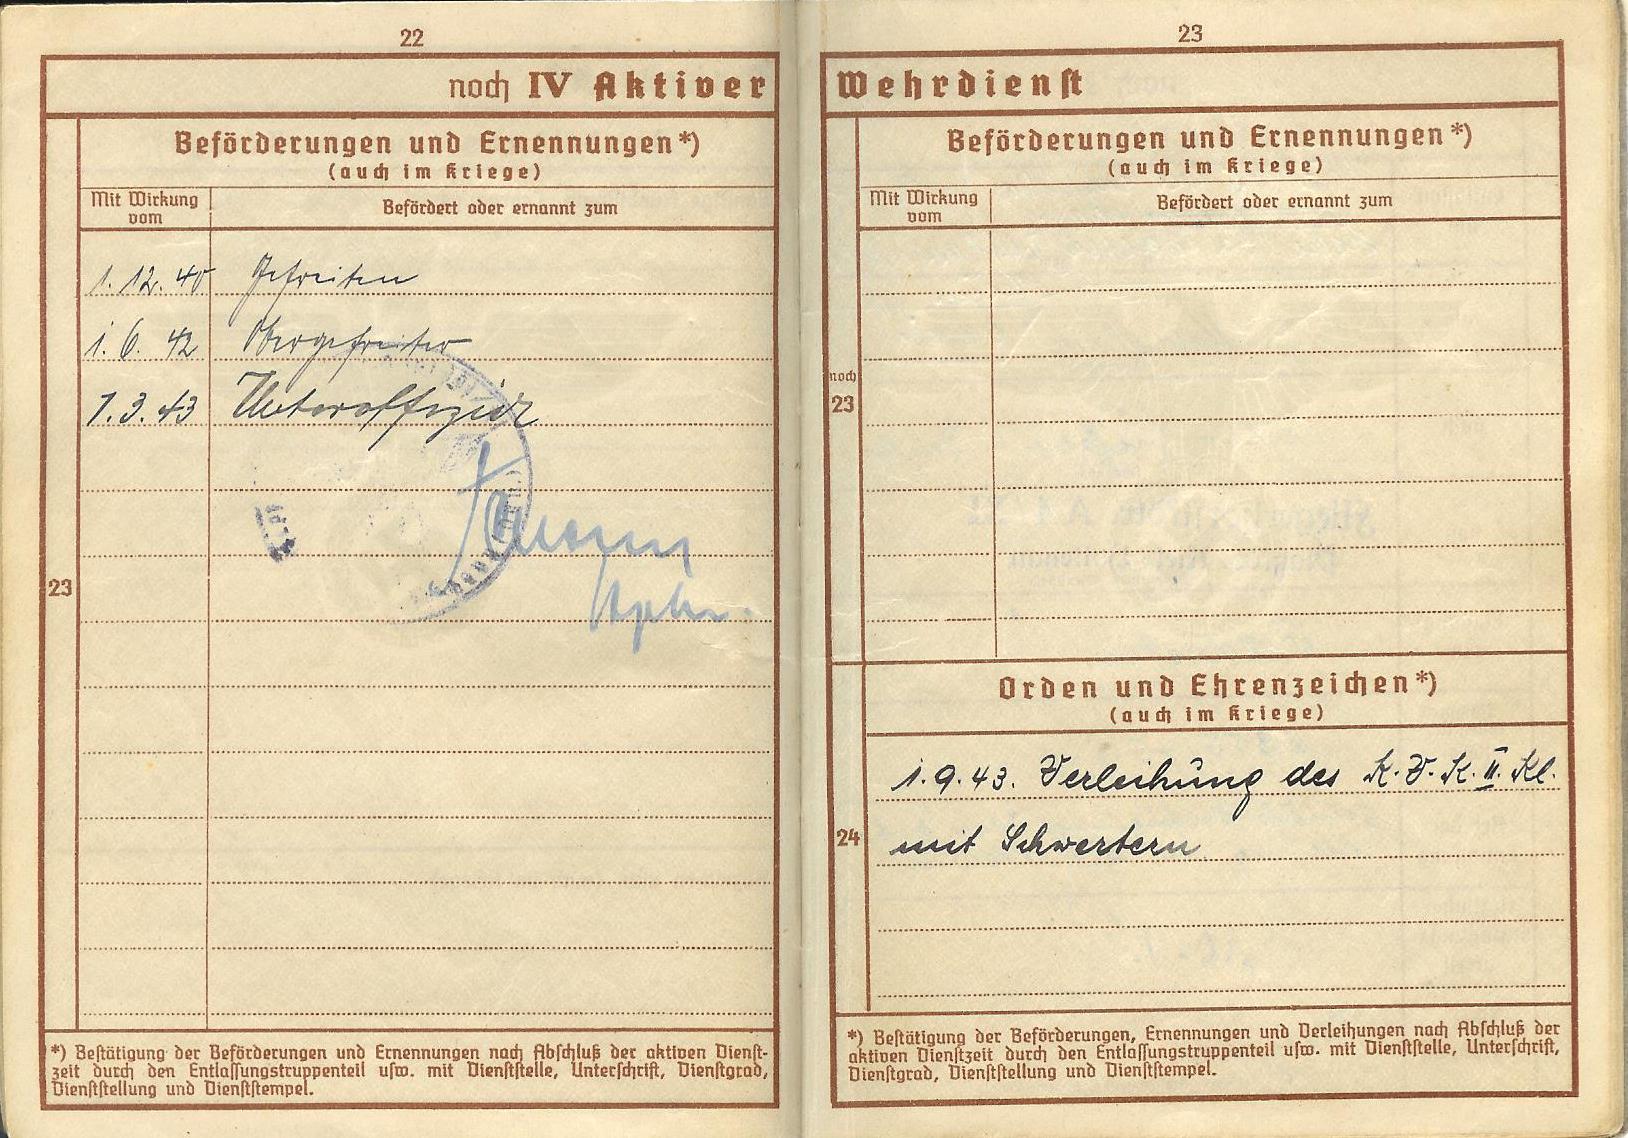 22
noch IV Aktiver
Beförderungen und Ernennungen*)
(auch im Kriege)
Mit Wirkung
vom
Befördert oder ernannt zum
1.12.40 Gefreiten
1.6.42 Obergefreiter
1.3.43 Unteroffizier
23
*) Bestätigung der Beförderungen und Ernennungen nach Abschluß der aktiven Dienst-
zeit durch den Entlassungstruppenteil usw. mit Dienststelle, Unterschrift, Dienstgrad,
Dienststellung und Dienststempel.
23
Wehrdienst
Beförderungen und Ernennungen*)
(auch im Kriege)
Mit Wirkung
vom
Befördert oder ernannt zum
noch
23
Orden und Ehrenzeichen*)
(auch im Kriege)
1.9.43. Verleihung des K.V.K. II. Kl.
24
mit Schwertern
*) Bestätigung der Beförderungen, Ernennungen und Verleihungen nach Abschluß der
aktiven Dienstzeit durch den Entlassungstruppenteil usw. mit Dienststelle, Unterschrift,
Dienstgrad, Dienststellung und Dienststempel.